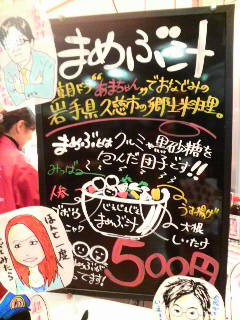 まめぶ汁
朝ドラ"あまちゃん"でおなじみの
岩手県久慈市の郷土料理。
まめぶとは クルミや黒砂糖を
包んだ団子です!!
みつば
人参
うす揚げ
ごぼう
じぇじぇじぇな
まめぶ汁
大根
しいたけ
500円
ほんと一度